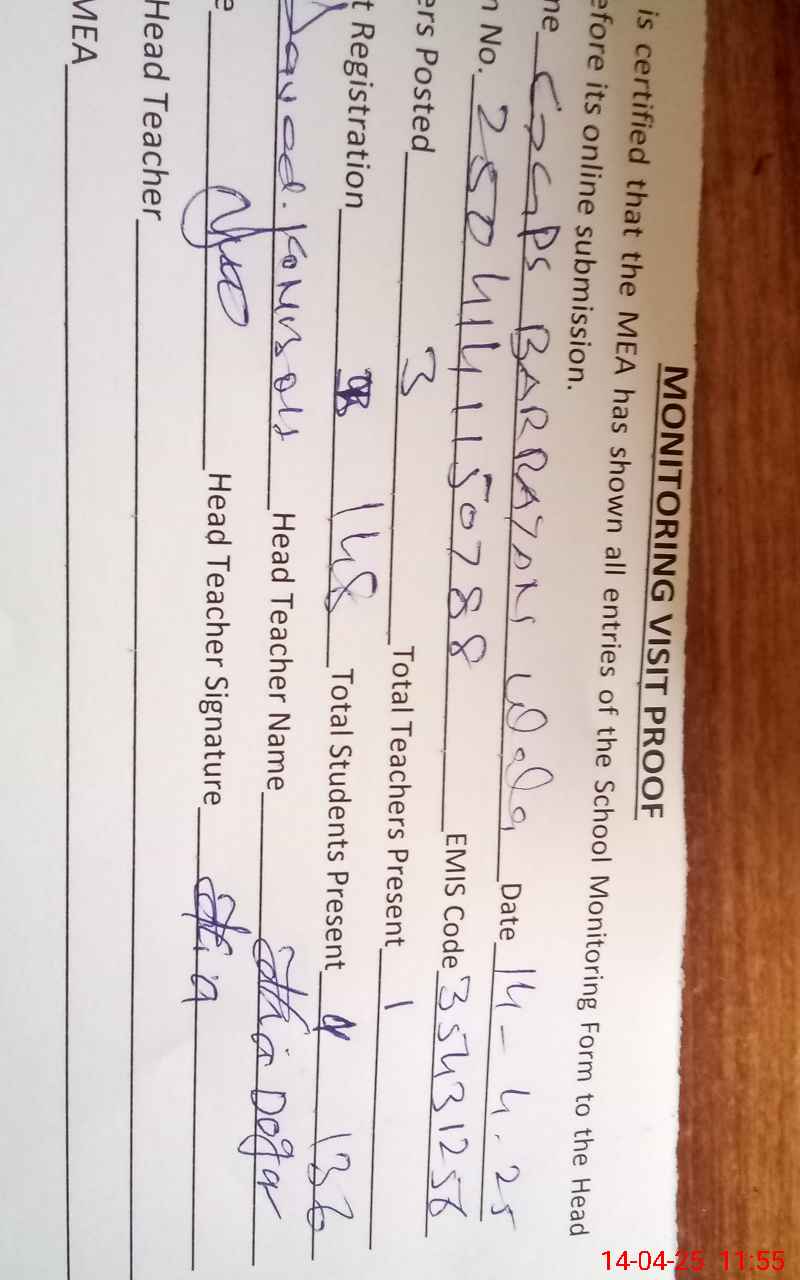 MONITORING VISIT PROOF
is certified that the MEA has shown all entries of the School Monitoring Form to the Head
efore its online submission.
ne GGPS BARRAYAN Wala Date 14-4.25
n No. 2504141150788 EMIS Code 35431256
ers Posted 3 Total Teachers Present 1
t Registration 148 Total Students Present 136
Head Teacher Name Dogar
e Head Teacher Signature
Head Teacher
MEA
14-04-25 11:55